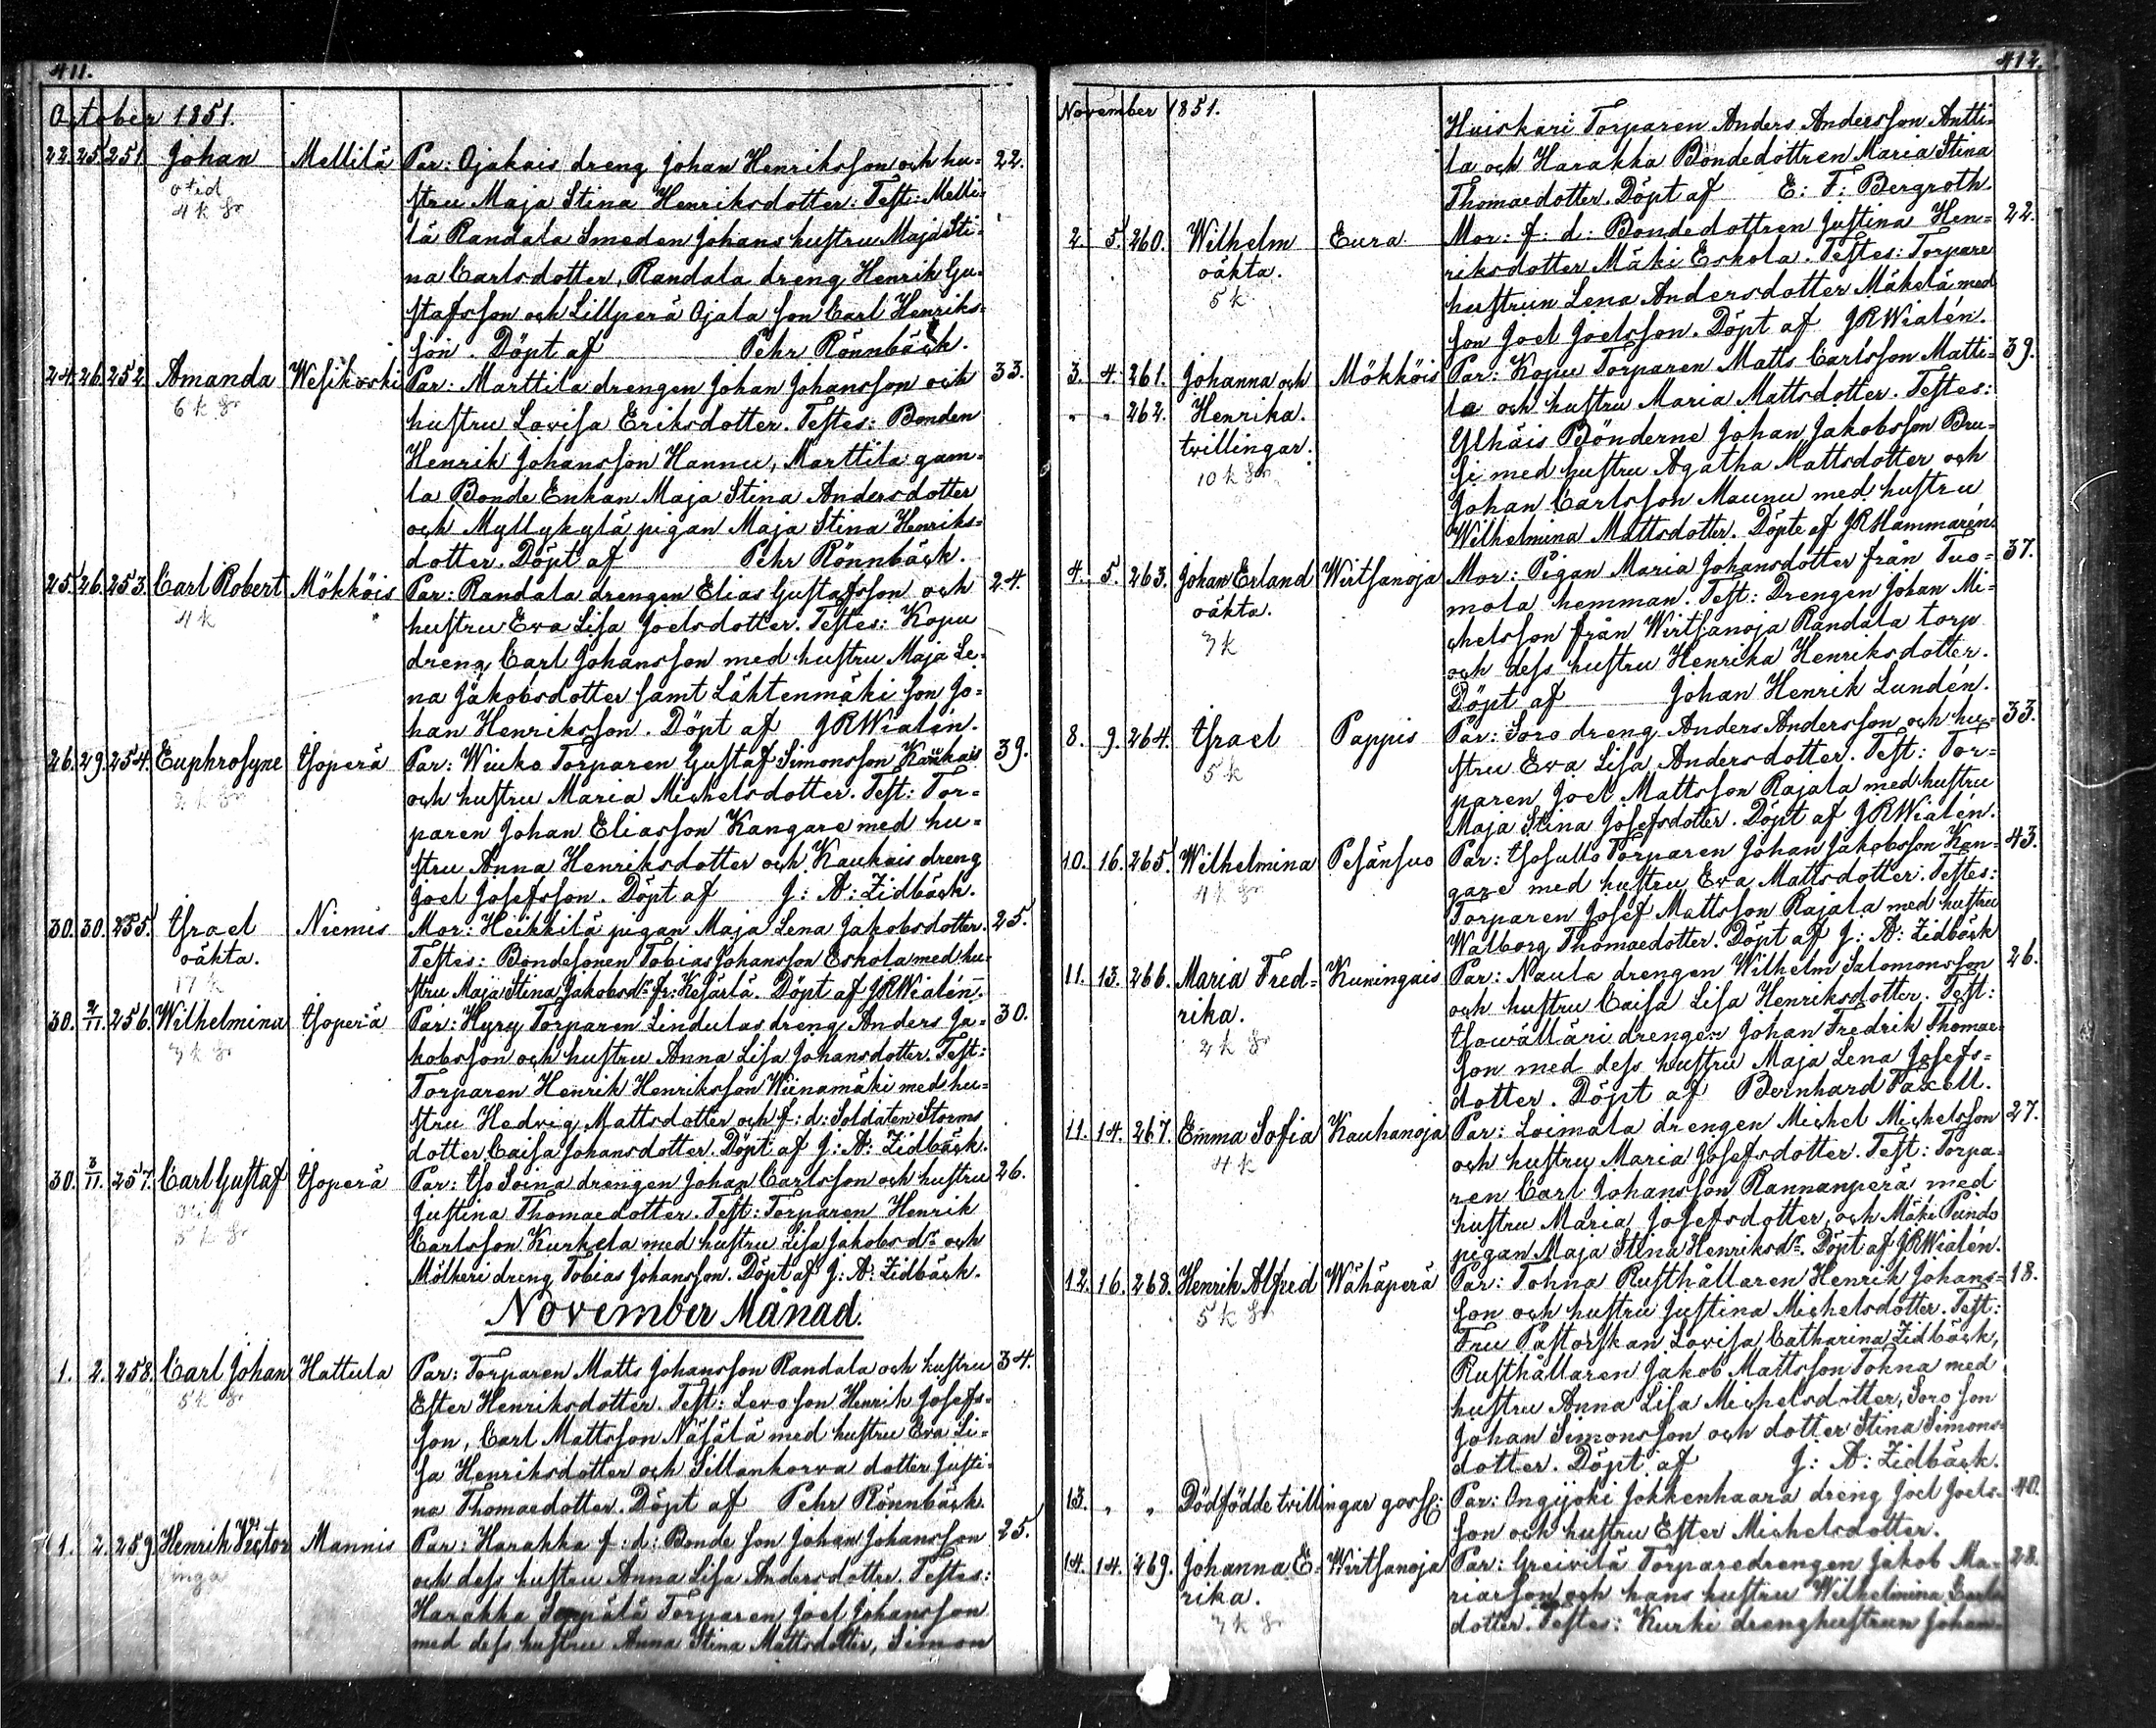 411.
October 1851.
22. 25. 251. Johan Mellilä Par: Ojakais dreng Johan Henriksson och hu= 22.
o tid
4 k gr
stru Maja Stina Henriksdotter. Test: Melli=
lä Randala Smeden Johans hustru Maja Sti=
na Carlsdotter, Randala dreng Henrik Gu=
stafsson och Lillperä Ojala son Carl Henriks=
son. Döpt af Pehr Rönnbäck.
24. 26. 252. Amanda Wesikoski Par: Marttila drengen Johan Johansson och 33.
6 k gr
hustru Lovisa Eriksdotter. Testes: Bonden
Henrik Johansson Hannu, Marttila gam=
la Bonde Enkan Maja Stina Andersdotter
och Myllykylä pigan Maja Stina Henriks=
dotter. Döpt af Pehr Rönnbäck.
25. 26. 253. Carl Robert Mökköis Par: Randala drengen Elias Gustafsson och 24.
4 k
hustru Eva Lisa Joelsdotter. Testes: Kopu
dreng Carl Johansson med hustru Maja Le=
na Jakobsdotter samt Lähtenmäki son Jo=
han Henriksson. Döpt af JRWialén.
26. 29. 254. Euphrosyne Ysoperä Par: Wiuko Torparen Gustaf Simonsson Kaukais 39.
och hustru Maria Michelsdotter. Test: Tor=
paren Johan Eliasson Kangare med hu=
stru Anna Henriksdotter och Kaukais dreng
Joel Josefsson. Döpt af J: A: Lidbäck.
30. 30. 255. Israel Niemis Mor: Heikkilä pigan Maja Lena Jakobsdotter. 25.
oäkta.
17 k
Testes: Bondesonen Tobias Johansson Eskola med hu=
stru Maja Stina Jakobsdr fr: Kesärlä. Döpt af JRWialén.
30. 2/11. 256. Wilhelmina Ysoperä Par: Hyry Torparen Lindulas dreng Anders Ja= 30.
3 k gr
kobsson och hustru Anna Lisa Johansdotter. Test:
Torparen Henrik Henriksson Wiinamäki med hu=
stru Hedvig Mattsdotter och f: d: Soldaten Storms
dotter Caisa Johansdotter. Döpt af J: A: Lidbäck.
30. 3/11. 257. Carl Gustaf Ysoperä Par: Yso Soina drengen Johan Carlsson och hustru 26.
5 k gr
Justina Thomaedotter. Test: Torparen Henrik
Carlsson Kurkela med hustru Lisa Jakobsdr och
Mölkeri dreng Tobias Johansson. Döpt af J: A: Lidbäck.
November Månad.
1. 2. 258. Carl Johan Hattula Par: Torparen Matts Johansson Randala och hustru 34.
5 k gr
Ester Henriksdotter. Test: Levo son Henrik Josefs=
son, Carl Mattsson Näsälä med hustru Eva Li=
sa Henriksdotter och Sillankorva dotter Justi=
na Thomaedotter. Döpt af Pehr Rönnbäck.
1. 2. 259 Henrik Victor Mannis Par: Harakka f: d: Bonde son Johan Johansson 25.
inga
och dess hustru Anna Lisa Andersdotter. Testes:
Harakka Seppälä Torparen Joel Johansson
med dess hustru Anna Stina Mattsdotter, Simon
412.
November 1851.
Huiskari Torparen Anders Andersson Antti=
la och Harakka Bondedottren Maria Stina
Thomaedotter. Döpt af E: F: Bergroth.
2. 5. 260. Wilhelm Eura Mor: f: d: Bondedottren Justina Hen= 22.
oäkta.
5 k
riksdotter Mäki Eskola. Testes: Torpare
hustrun Lena Andersdotter Mäkelä med
son Joel Joelsson. Döpt af JRWialén.
3. 4. 261. Johanna och Mökköis Par: Kopu Torparen Matts Carlsson Matti= 39.
" " 262. Henrika.
twillingar.
10 k gr
la och hustru Maria Mattsdotter. Testes:
Ylhäis Bönderne Johan Jakobsson Bru=
si med hustru Agatha Mattsdotter och
Johan Carlsson Maunu med hustru
Wilhelmina Mattsdotter. Döpte af JRHammarén.
4. 5. 263. Johan Erland Wirtsanoja Mor: Pigan Maria Johansdotter från Tuo= 37.
oäkta.
3 k
mola hemman. Test: Drengen Johan Mi=
chelsson från Wirtsanoja Randala torp
och dess hustru Henrika Henriksdotter.
Döpt af Johan Henrik Lundén.
8. 9. 264. Israel Pappis Par: Soro dreng Anders Andersson och hu= 33.
5 k
stru Eva Lisa Andersdotter. Test: Tor=
paren Joel Mattsson Rajala med hustru
Maja Stina Josefsdotter. Döpt af JRWialén.
10. 16. 265. Wilhelmina Pesänsuo Par: Ysosullo Torparen Johan Jakobsson Kan= 43.
4 k gr
gare med hustru Eva Mattsdotter. Testes:
Torparen Josef Mattsson Rajala med hustru
Walborg Thomaedotter. Döpt af J: A: Lidbäck
11. 13. 266. Maria Fred= Kuningais Par: Naula drengen Wilhelm Salomonsson 26.
rika.
2 k gr
och hustru Caisa Lisa Henriksdotter. Test:
Ysowältäri drengen Johan Fredrik Thomae=
son med dess hustru Maja Lena Josefs=
dotter. Döpt af Bernhard Taxell.
11. 14. 267. Emma Sofia Kauhanoja Par: Loimala drengen Michel Michelsson 27.
4 k
och hustru Maria Josefsdotter. Test: Torpa=
ren Carl Johansson Rannanperä med
hustru Maria Josefsdotter, och Mäki Pundo
pigan Maja Stina Henriksdr. Döpt af JRWialén.
12. 16. 268. Henrik Alfred Wähäperä Par: Tohna Rusthållaren Henrik Johans= 18.
5 k gr
son och hustru Justina Michelsdotter. Test:
Fru Pastorskan Lovisa Catharina Lidbäck,
Rusthållaren Jakob Mattsson Tohna med
hustru Anna Lisa Michelsdotter, Soro son
Johan Simonsson och dotter Stina Simons=
dotter. Döpt af J: A: Lidbäck.
13. " " Dödfödde twillingar goss: Par: Ongijoki Jokkenhaara dreng Joel Joels= 40.
son och hustru Ester Michelsdotter.
14. 14. 269. Johanna E= Wirtsanoja Par: Greivilä Torparedrengen Jakob Ma= 28.
rika.
3 k gr
riasson och hans hustru Wilhelmina Carls
dotter. Testes: Kurki drenghustrun Johan=